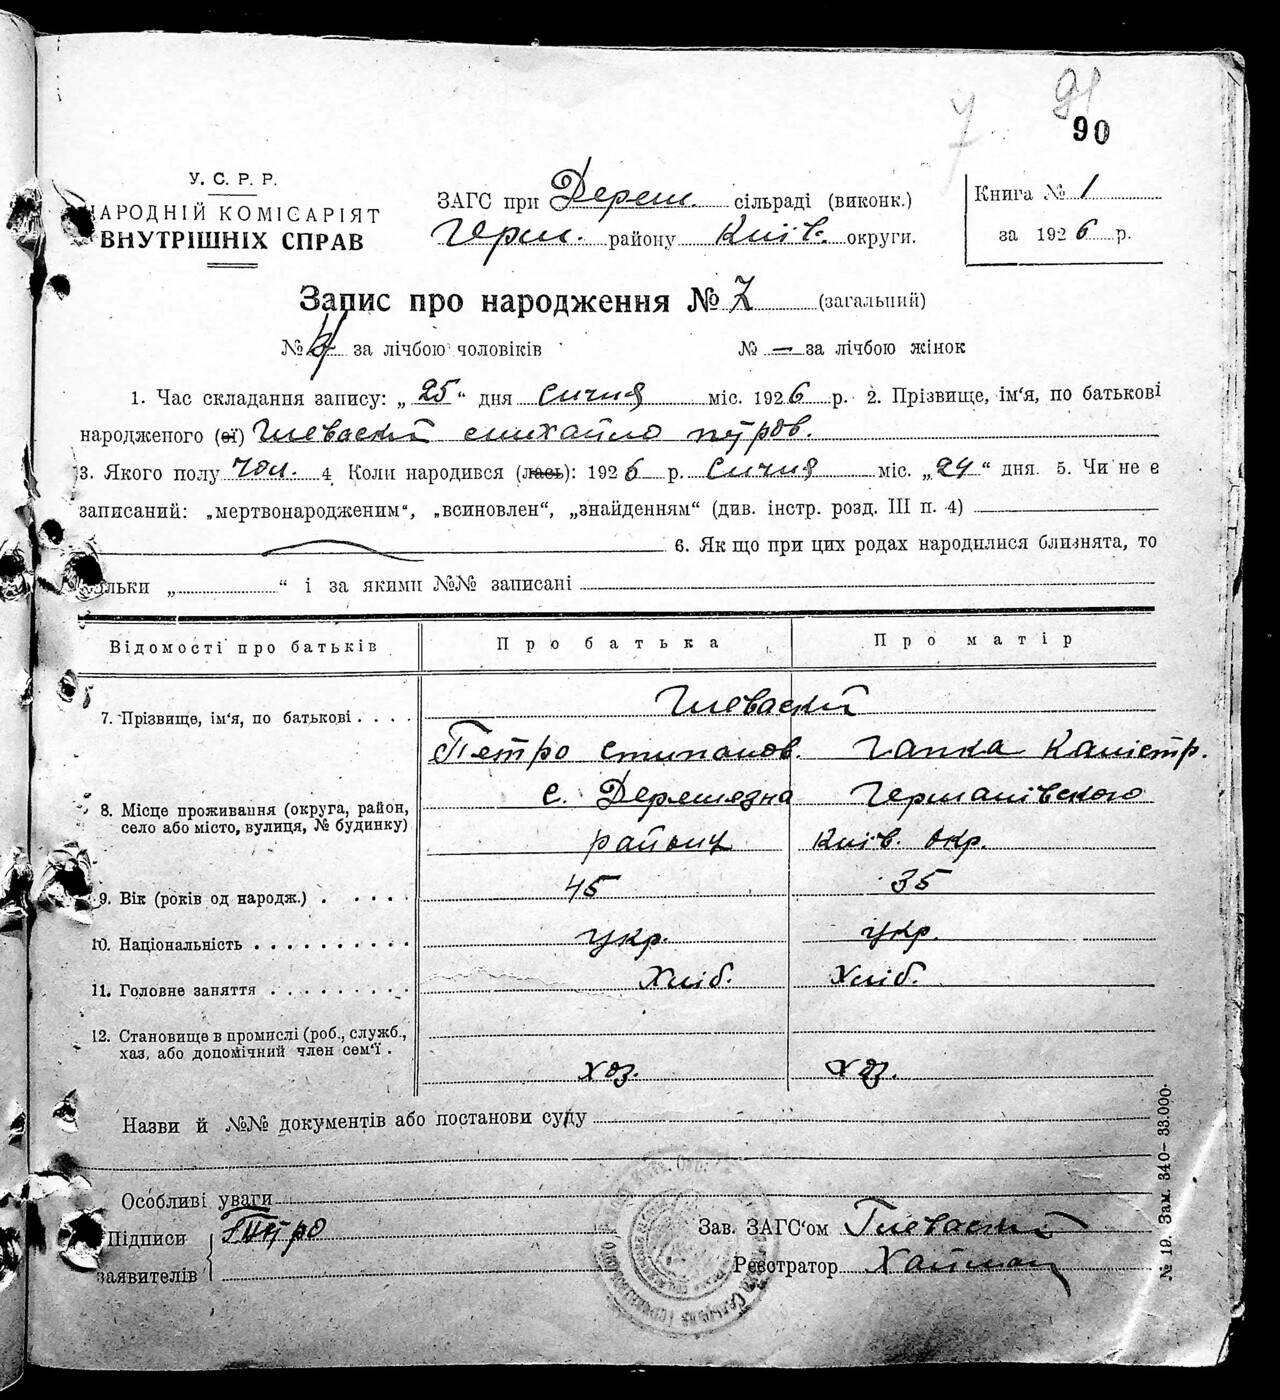 7
91
90
У. С. Р. Р.
НАРОДНІЙ КОМІСАРІЯТ
ВНУТРІШНІХ СПРАВ
ЗАГС при Дереш. сільраді (виконк.)
Герм. району Київ. округи.
Книга № 1
за 1926 р.
Запис про народження № 7 (загальний)
№ 4 за лічбою чоловіків № — за лічбою жінок
1. Час складання запису: „ 25 “ дня Сичня міс. 1926 р. 2. Прізвище, ім‘я, по батькові
народженого (ої) Глеваский михайло петров.
3. Якого полу чол. 4 Коли народився (лась): 1926 р. Сичня міс. „24“ дня. 5. Чи не є
записаний: „мертвонародженим“, „всиновлен“, „знайденням“ (див. інстр. розд. III п. 4)
6. Якщо при цих родах народилися близнята, то
скільки „ “ і за якими №№ записані
Відомості про батьків Про батька Про матір
7. Прізвище, ім‘я, по батькові . . . . Глеваский
Петро стипанов. Гапка Калістр.
8. Місце проживання (округа, район, село або місто, вулиця, № будинку) с. Деремезна Германівського
району Київ. окр.
9. Вік (років од народж.) . . . . . 45 35
10. Національність . . . . . . . . . . укр. укр.
11. Головне заняття . . . . . . . . . Хліб. Хліб.
12. Становище в промислі (роб., служб.,
хаз. або допомічний член сем‘ї . хоз. хоз.
Назви й №№ документів або постанови суду
Особливі уваги
Підписи Петро Зав. ЗАГС‘ом Глеваский
заявителів Реєстратор
№ 19. Зам. 340—33.000.